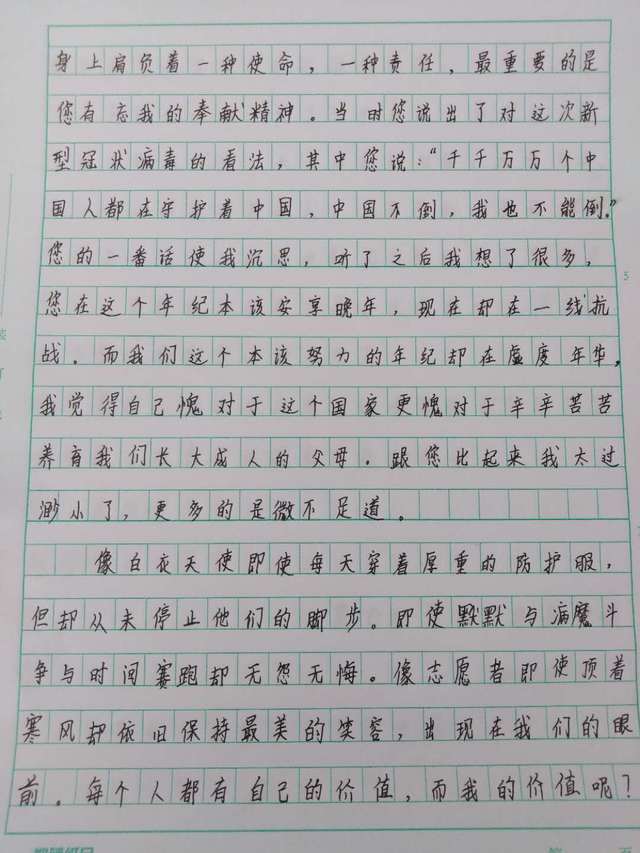 身上肩负着一种使命，一种责任，最重要的是
您有忘我的奉献精神。当时您说出了对这次新
型冠状病毒的看法，其中您说：“千千万万个中
国人都在守护着中国，中国不倒，我也不能倒。”
您的一番话使我沉思，听了之后我想了很多，
您在这个年纪本该安享晚年，现在却在一线抗
战。而我们这个本该努力的年纪却在虚度年华，
我觉得自己愧对于这个国家更愧对于辛辛苦苦
养育我们长大成人的父母。跟您比起来我太过
渺小了，更多的是微不足道。
像白衣天使即使每天穿着厚重的防护服，
但却从未停止他们的脚步。即使默默与病魔斗
争与时间赛跑却无怨无悔。像志愿者即使顶着
寒风却依旧保持最美的笑容，出现在我们的眼
前。每个人都有自己的价值，而我的价值呢？